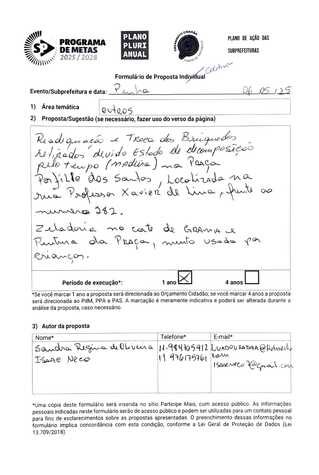 PROGRAMA
DE METAS
2025 / 2028
PLANO
PLURI
ANUAL
PLANO DE AÇÃO DAS
SUBPREFEITURAS
Formulário de Proposta Individual
Evento/Subprefeitura e data: Penha 06/05/25
1) Área temática
outros
2) Proposta/Sugestão (se necessário, fazer uso do verso da página)
Readequação e Troca dos Brinquedos
Retirados devido Estado de decomposição
pelo tempo (madeira) na Praça
Porfilio dos Santos, Localizada na
rua Professor Xavier de Lima, frente ao
numero 282.
Zeladoria no corte de GRAMA e
Pintura da Praça, muito usada por
crianças.
Período de execução*: 1 ano X 4 anos
*Se você marcar 1 ano a proposta será direcionada ao Orçamento Cidadão; se você marcar 4 anos a proposta
será direcionada ao PdM, PPA e PAS. A marcação é meramente indicativa e poderá ser alterada durante a
análise da proposta, caso necessário.
3) Autor da proposta
Nome* Telefone* E-mail*
Sandra Regina de Oliveira
Isane Neco 11 976175761
*Uma cópia deste formulário será inserida no sítio Participe Mais, com acesso público. As informações
pessoais indicadas neste formulário serão de acesso público e podem ser utilizadas para um contato pessoal
para fins de esclarecimentos sobre as propostas apresentadas. O preenchimento dessas informações no
formulário implica concordância com esta condição, conforme a Lei Geral de Proteção de Dados (Lei
13.709/2018)